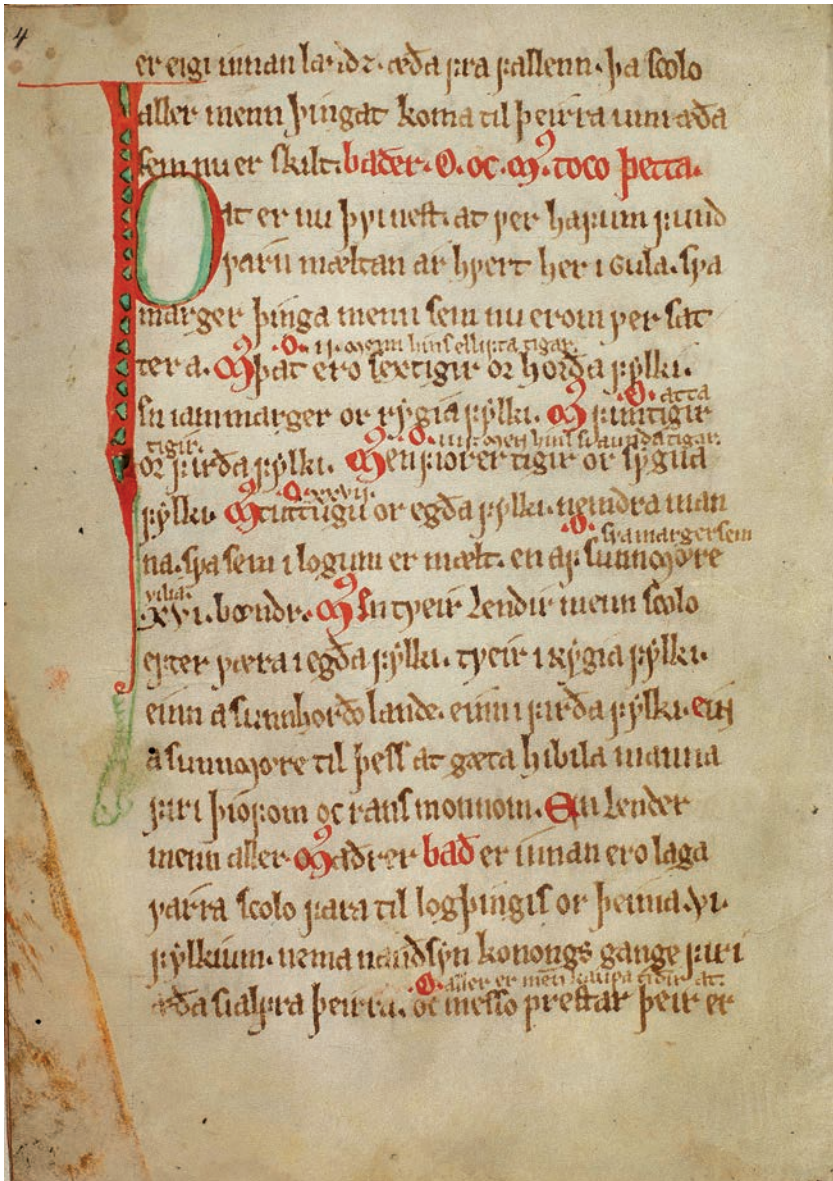 4
er eigi innan landz. æða fra fallenn. þa scolo
aller menn þingat koma til þeirra um ræða
sem nu er skilt. baðer. O. oc. M. toco þetta.
Þat er nu þvi nest. at ver havum fund
varn mæltan ar hvert her i Gula. sva
marger þinga menn sem nu erom ver sat
.O. ij. menn hins ellifta tigar.
ter a. M. þat ero sextigir or horða fylki.
.O. atta
sv iammarger or rygia fylki. M fimtigir
tigir. .O. menn hins tigar.
or firða fylki. M. en fiorer tigir or sygna
.O. xxvij.
fylki. M tuttugu or egða fylki. nemdra man
.O. sva marger sem
na. sva sem i logum er mælt. en af sunnmøre
vilia.
.xvi. bøndr. M Sn tveir lendir menn scolo
efter væra i egða fylki. tveir i rygia fylki.
einn a sunnhorðo lande. einn i firða fylki. ein
a sunnmøre til þess at gæta hibila manna
firi þiofom oc rans monnom. En lender
menn aller. M aðrer bað er innan ero laga
varra scolo fara til logþingis or þeima .vi.
fylkium. nema nauðsyn konongs gange firi
.O. aller er menn kaupa tiðir at.
æða sialfra þeirra. oc messo prestar þeir er